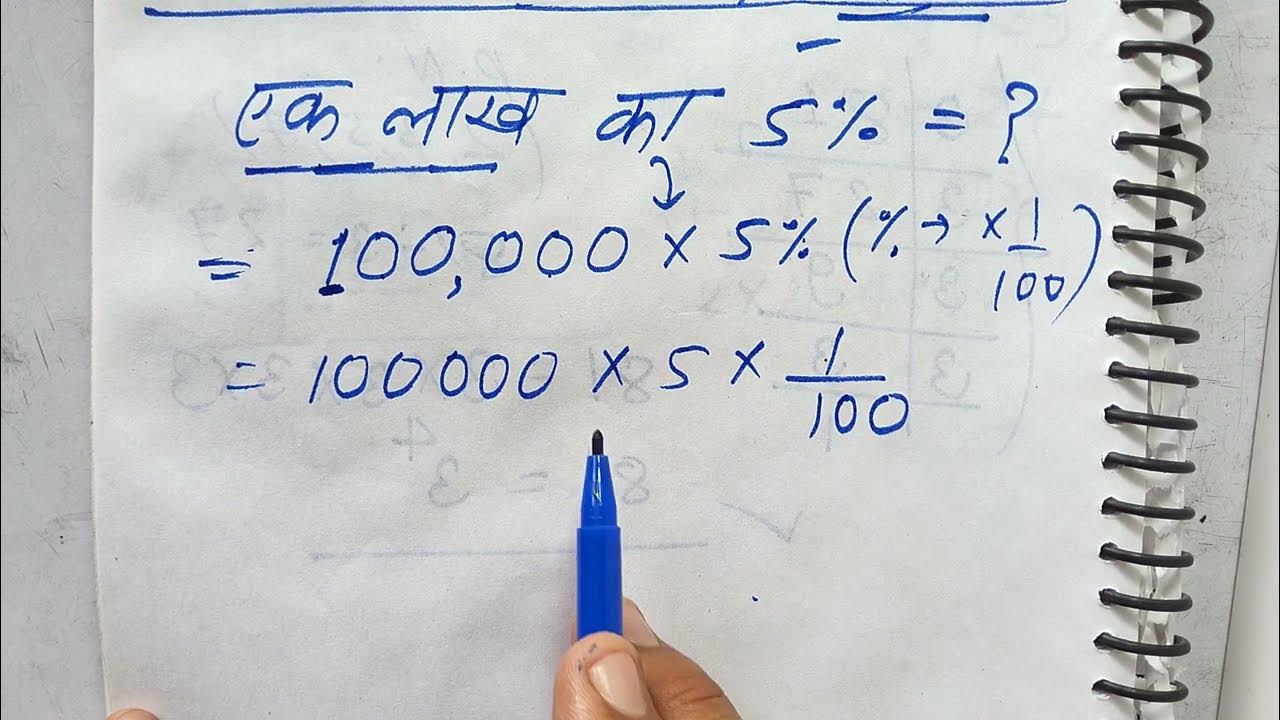 एक लाख का 5% = ?
= 100,000 × 5% (% → × 1/100)
= 100000 × 5 × 1/100